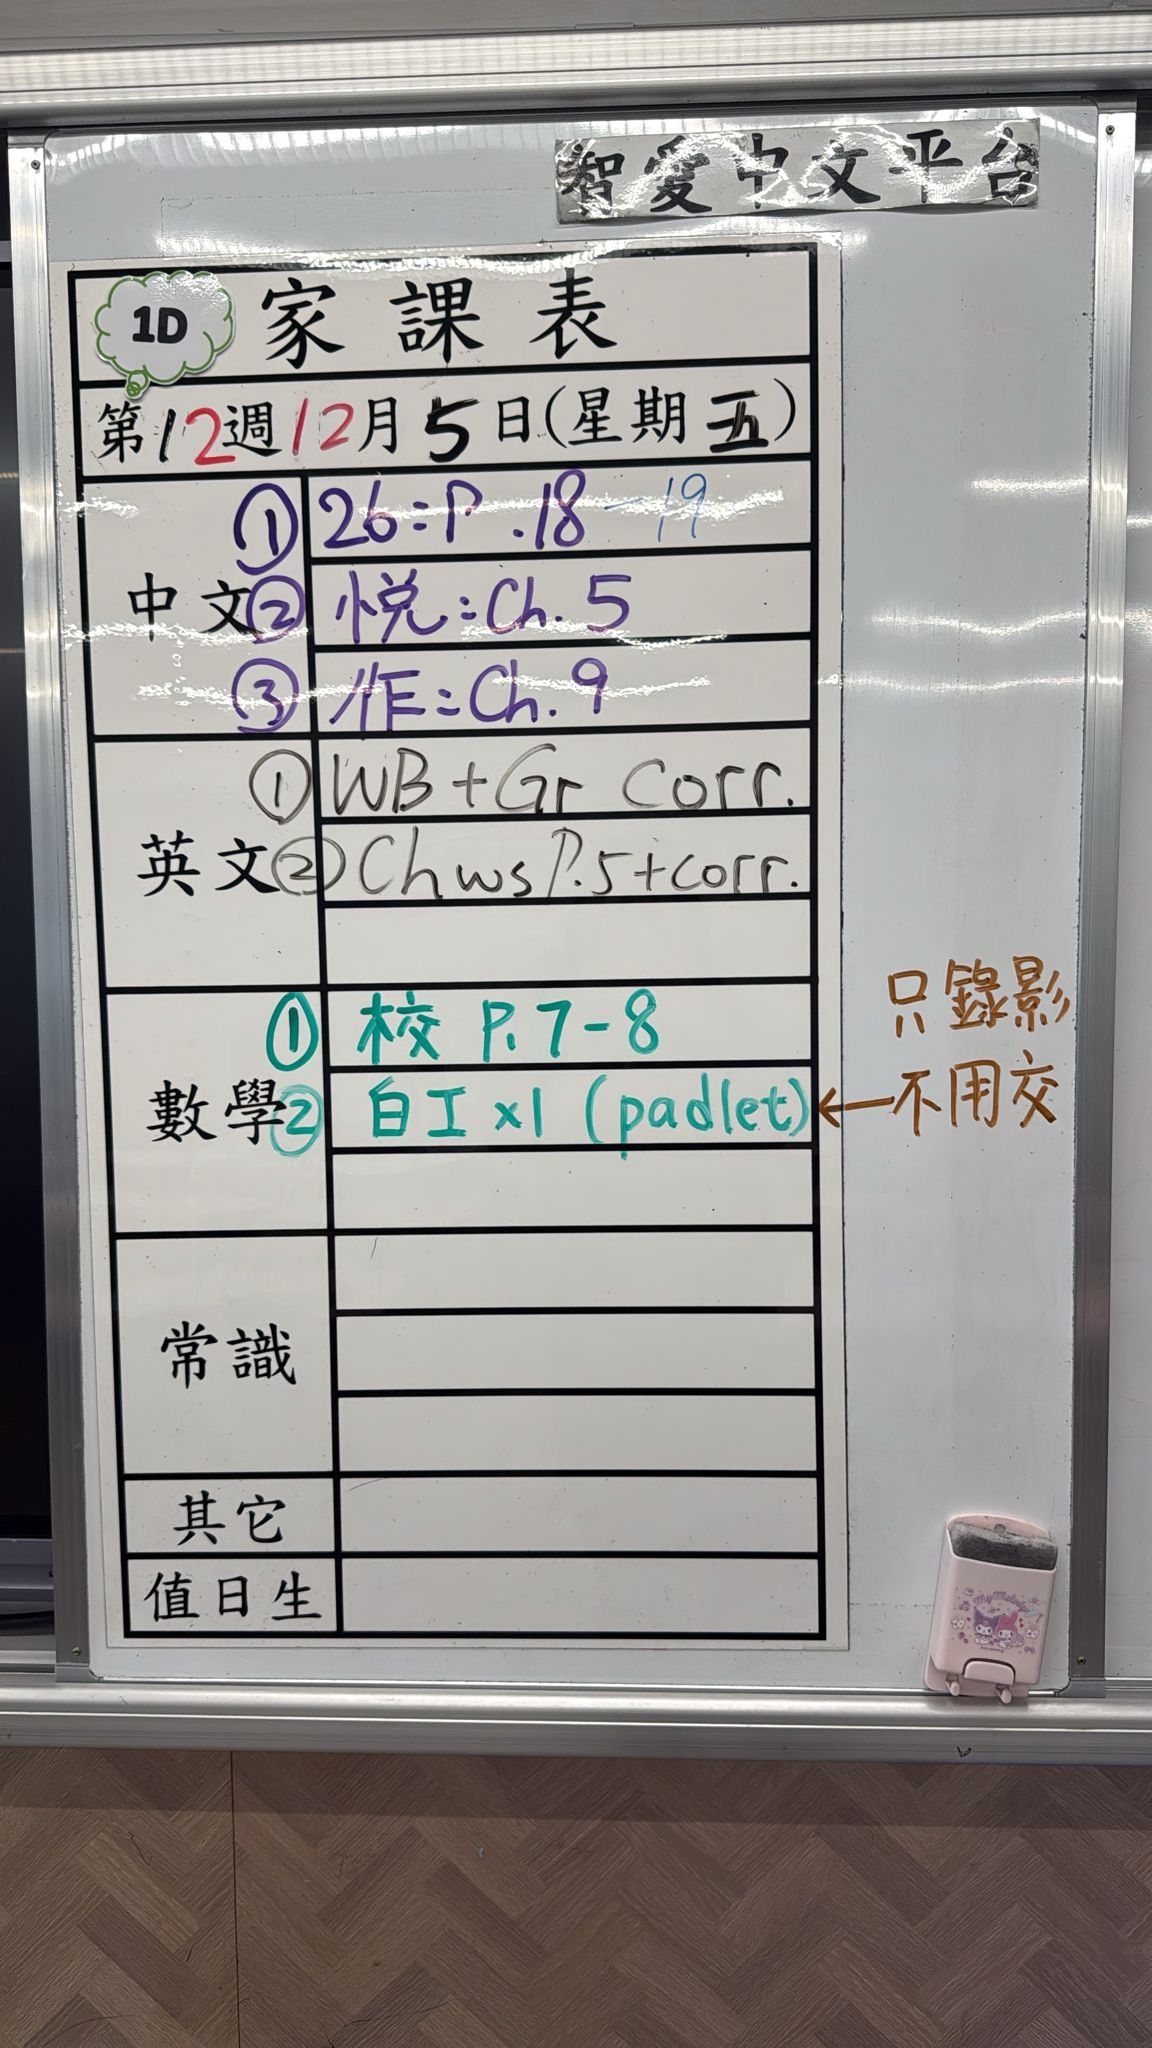 智愛中文平台
1D 家課表
第12週12月5日(星期五)
中文
① 26:P.18-19
② 悅:Ch.5
③ 作:Ch.9
英文
① WB+Gr Corr.
② Ch ws P.5+corr.
數學
① 校 P.7-8
② 白工x1 (padlet) ←
只錄影
不用交
常識
其它
值日生
My Melody